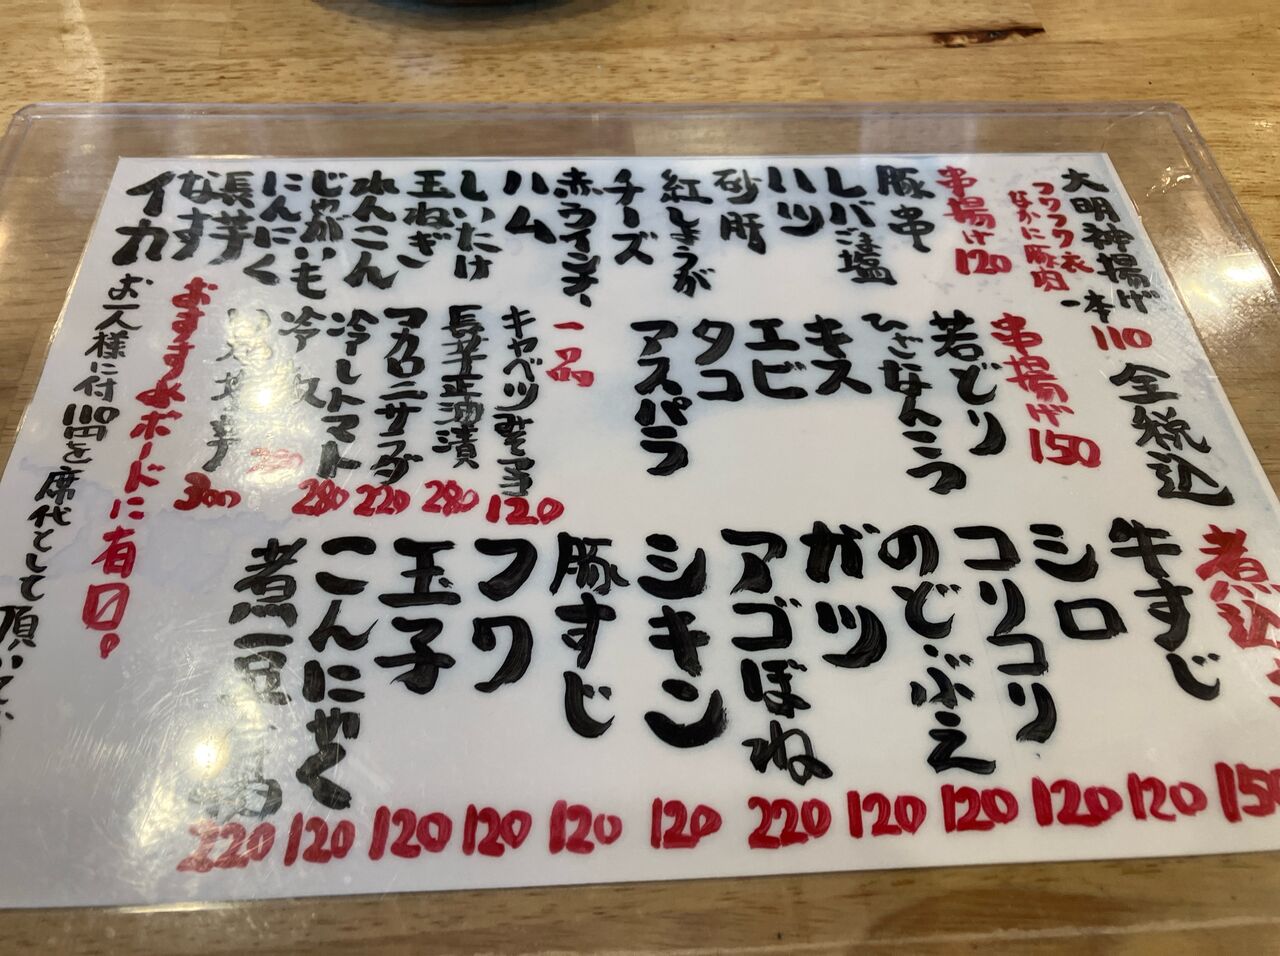 大明神揚げ 一本 110 全税込
フワフワ衣
なかに豚肉
串揚げ 120
豚串
レバごま塩
ハツ
砂肝
紅しょうが
チーズ
赤ウインナー
ハム
しいたけ
玉ねぎ
れんこん
じゃがいも
にんにく
長芋
なす
イカ
串揚げ 150
若どり
ひざなんこう
キス
エビ
タコ
アスパラ
一品
キャベツみそ 120
長芋正油漬 280
マカロニサラダ 220
冷しトマト 280
300
おすすめボードに有り。
お一人様に付110円を席代として頂いてい
煮込 150
牛すじ 120
シロ 120
コリコリ 120
のどぶえ 120
ガツ 120
アゴぼね 220
シキン 120
豚すじ 120
フワ 120
玉子 120
こんにゃく 120
煮豆腐 220